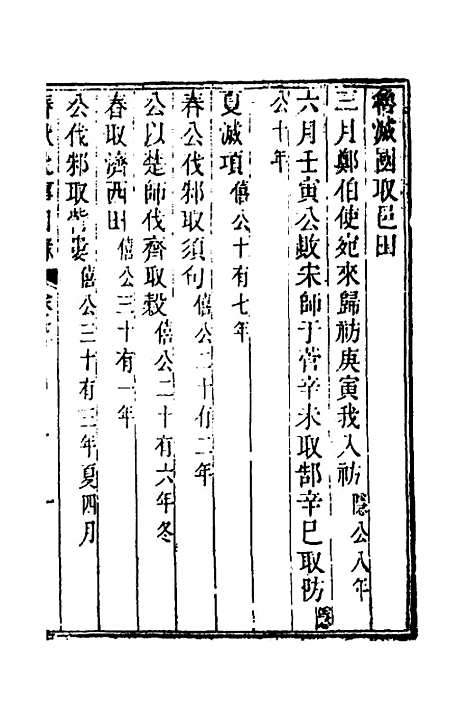 魯滅國取邑田
三月鄭伯使宛來歸祊庚寅我入祊隱公八年
六月壬寅公敗宋師于菅辛未取郜辛巳取防隱
公十年
夏滅項僖公十有七年
春公伐邾取須句僖公二十有二年
公以楚師伐齊取穀僖公二十有六年冬
春取濟西田僖公三十有一年
公伐邾取訾婁僖公三十有三年夏四月
春秋